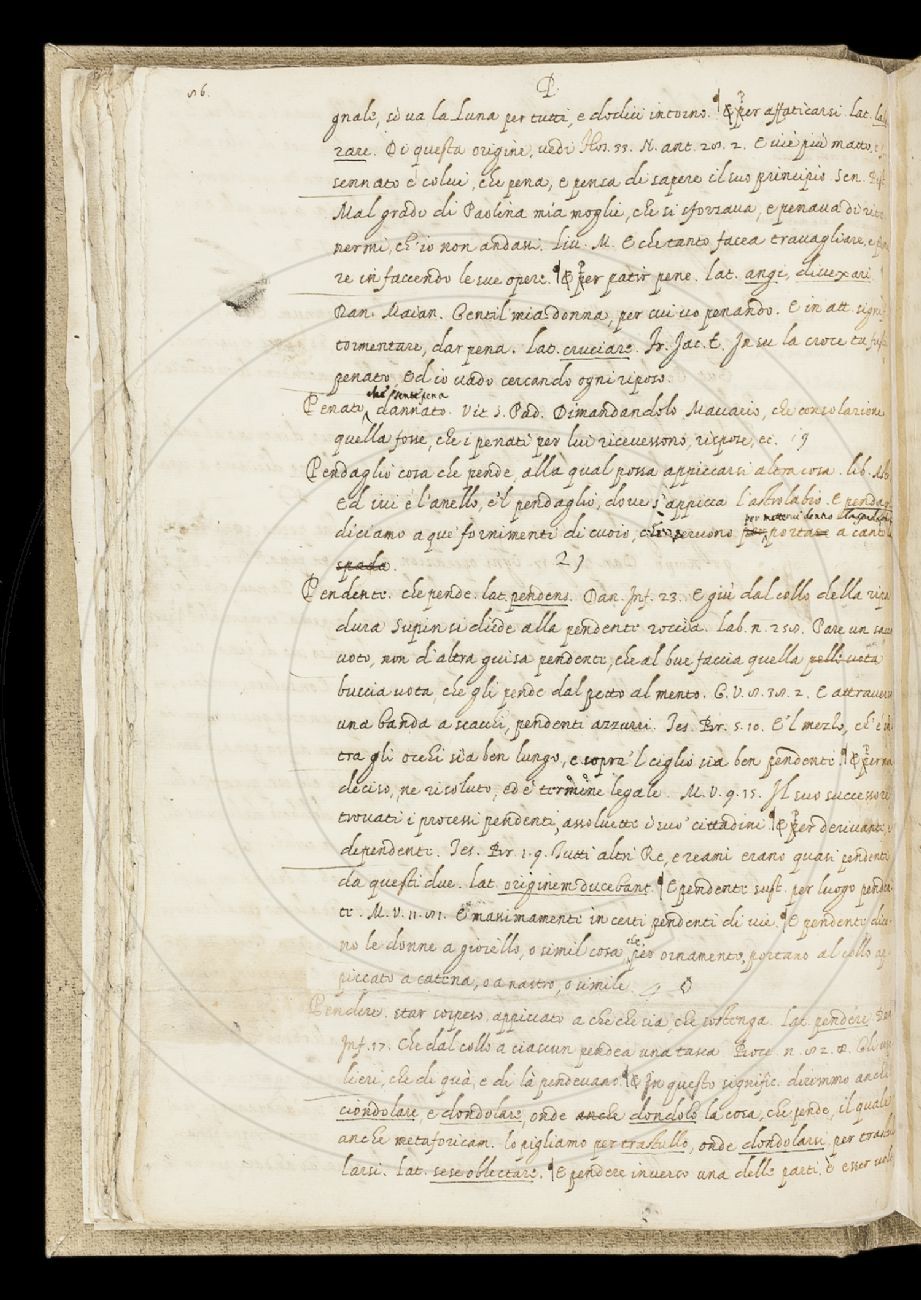 86.
P
gnale, sè va la Luna per tutti, e dodici intorno. ¶ E per affaticarsi. Lat. labo
rare. Di questa origine, vedi Fior. 33. N. ant. 28. 2. E vie più matto, e
sennato è colui, che pena, e pensa di sapere il suo principio Sen.
Mal grado di Paolina mia moglie, che si sforzava, e penava di rite
nermi, ch'io non andasi. Liv. M. E che tanto facea travagliare, e
re in faccendo le sue opere. ¶ E per patir pene. Lat. angi, divexari.
Dan. Maian. Gentil mia donna, per cui vo penando. E in att. signi
tormentare, dar pena. Lat. cruciare. Fr. Jac. T. In su la croce tu fusti
penato, Ed io vado cercando ogni riposo.
che sente pena
Penato, dannato. Vit. S. Pad. Dimandandolo Maccario, che consolazione
quella fosse, che i penati per lui ricevessono, rispose, ec.
Pendaglio cosa che pende, alla qual possa appiccarsi altra cosa. lib. Ast
Ed ivi è l'anello, e'l pendaglio, dove s'appicca l'astrolabio. E pendag
per mettervi dentro
diciamo a que' fornimenti di cuoio, che servono per portare a canto
spada.
Pendente. che pende. lat. pendens. Dan. Inf. 23. E giù dal collo della ripa
dura Supin si diede alla pendente roccia. Lab. n. 258. Pare un sacco
voto, non d'altra guisa pendente, che al bue faccia quella pelle vota
buccia vota, che gli pende dal petto al mento. G. V. 8. 38. 2. E attraverso
una banda a scacchi, pendenti azzurri. Tes. Br. 5. 10. E'l mezzo, ch'è
tra gli occhi sia ben lungo, e sopra'l ciglio sia ben pendente. ¶ E per no
deciso, ne risoluto, ed è termine legale. M. V. 9. 15. Il suo successore
trovati i processi pendenti, assolvette i suo' cittadini. ¶ E per derivante,
dependente. Tes. Br. 1. 9. Tutti altri Re, e reami erano quasi pendenti
da questi due. lat. originem ducebant. ¶ E pendente sust. per luogo penden
te. M. V. 11. 81. E massimamente in certi pendenti di vie. ¶ E pendente dico
che
no le donne a gioiello, o simil cosa, per ornamento, portano al collo ap
piccato a catena, o a nastro, o simile.
Pendere. star sospeso appiccato a che che sia, che sostenga. Lat. pendere. Dan
Inf. 17. Che dal collo a ciascun pendea una tasca Bocc. n. 82. 8. Gli usu
lieri, che di quà, e di là pendevano. ¶ E In questo signific. diremmo anche
ciondolare, e dondolare, onde anche dondolo la cosa, che pende, il quale
anche metaforicam. lo pigliamo per trastullo, onde dondolarsi per trastul
larsi. Lat. sese oblectare. ¶ E pendere inverso una delle parti. è esser volto